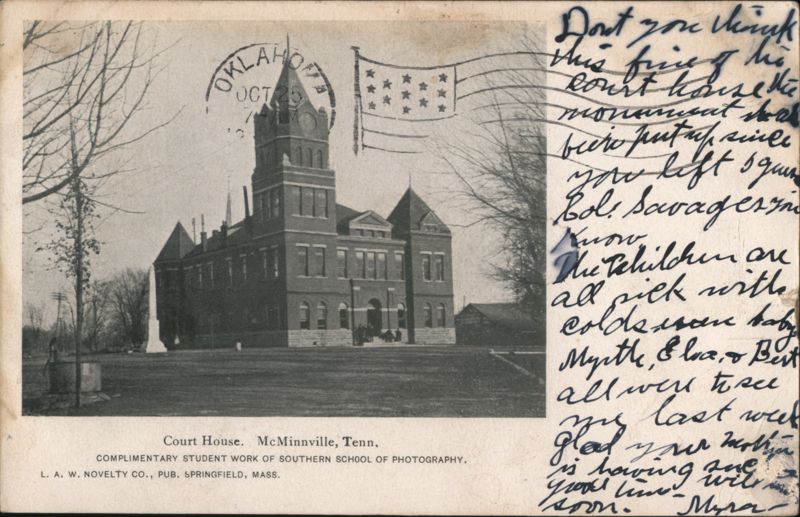 OKLAHOMA
OCT 25
Court House. McMinnville, Tenn.
COMPLIMENTARY STUDENT WORK OF SOUTHERN SCHOOL OF PHOTOGRAPHY.
L. A. W. NOVELTY CO., PUB. SPRINGFIELD, MASS.
Dont you think
this fine of the
court house the
monument has
been put up since
you left I guess
Col. Savage you
know
The Children are
all sick with
colds even baby
Myrtle, Elva, & Bert
all were to see
me last week
glad your mother
is having such
good time will
soon. - Myra -